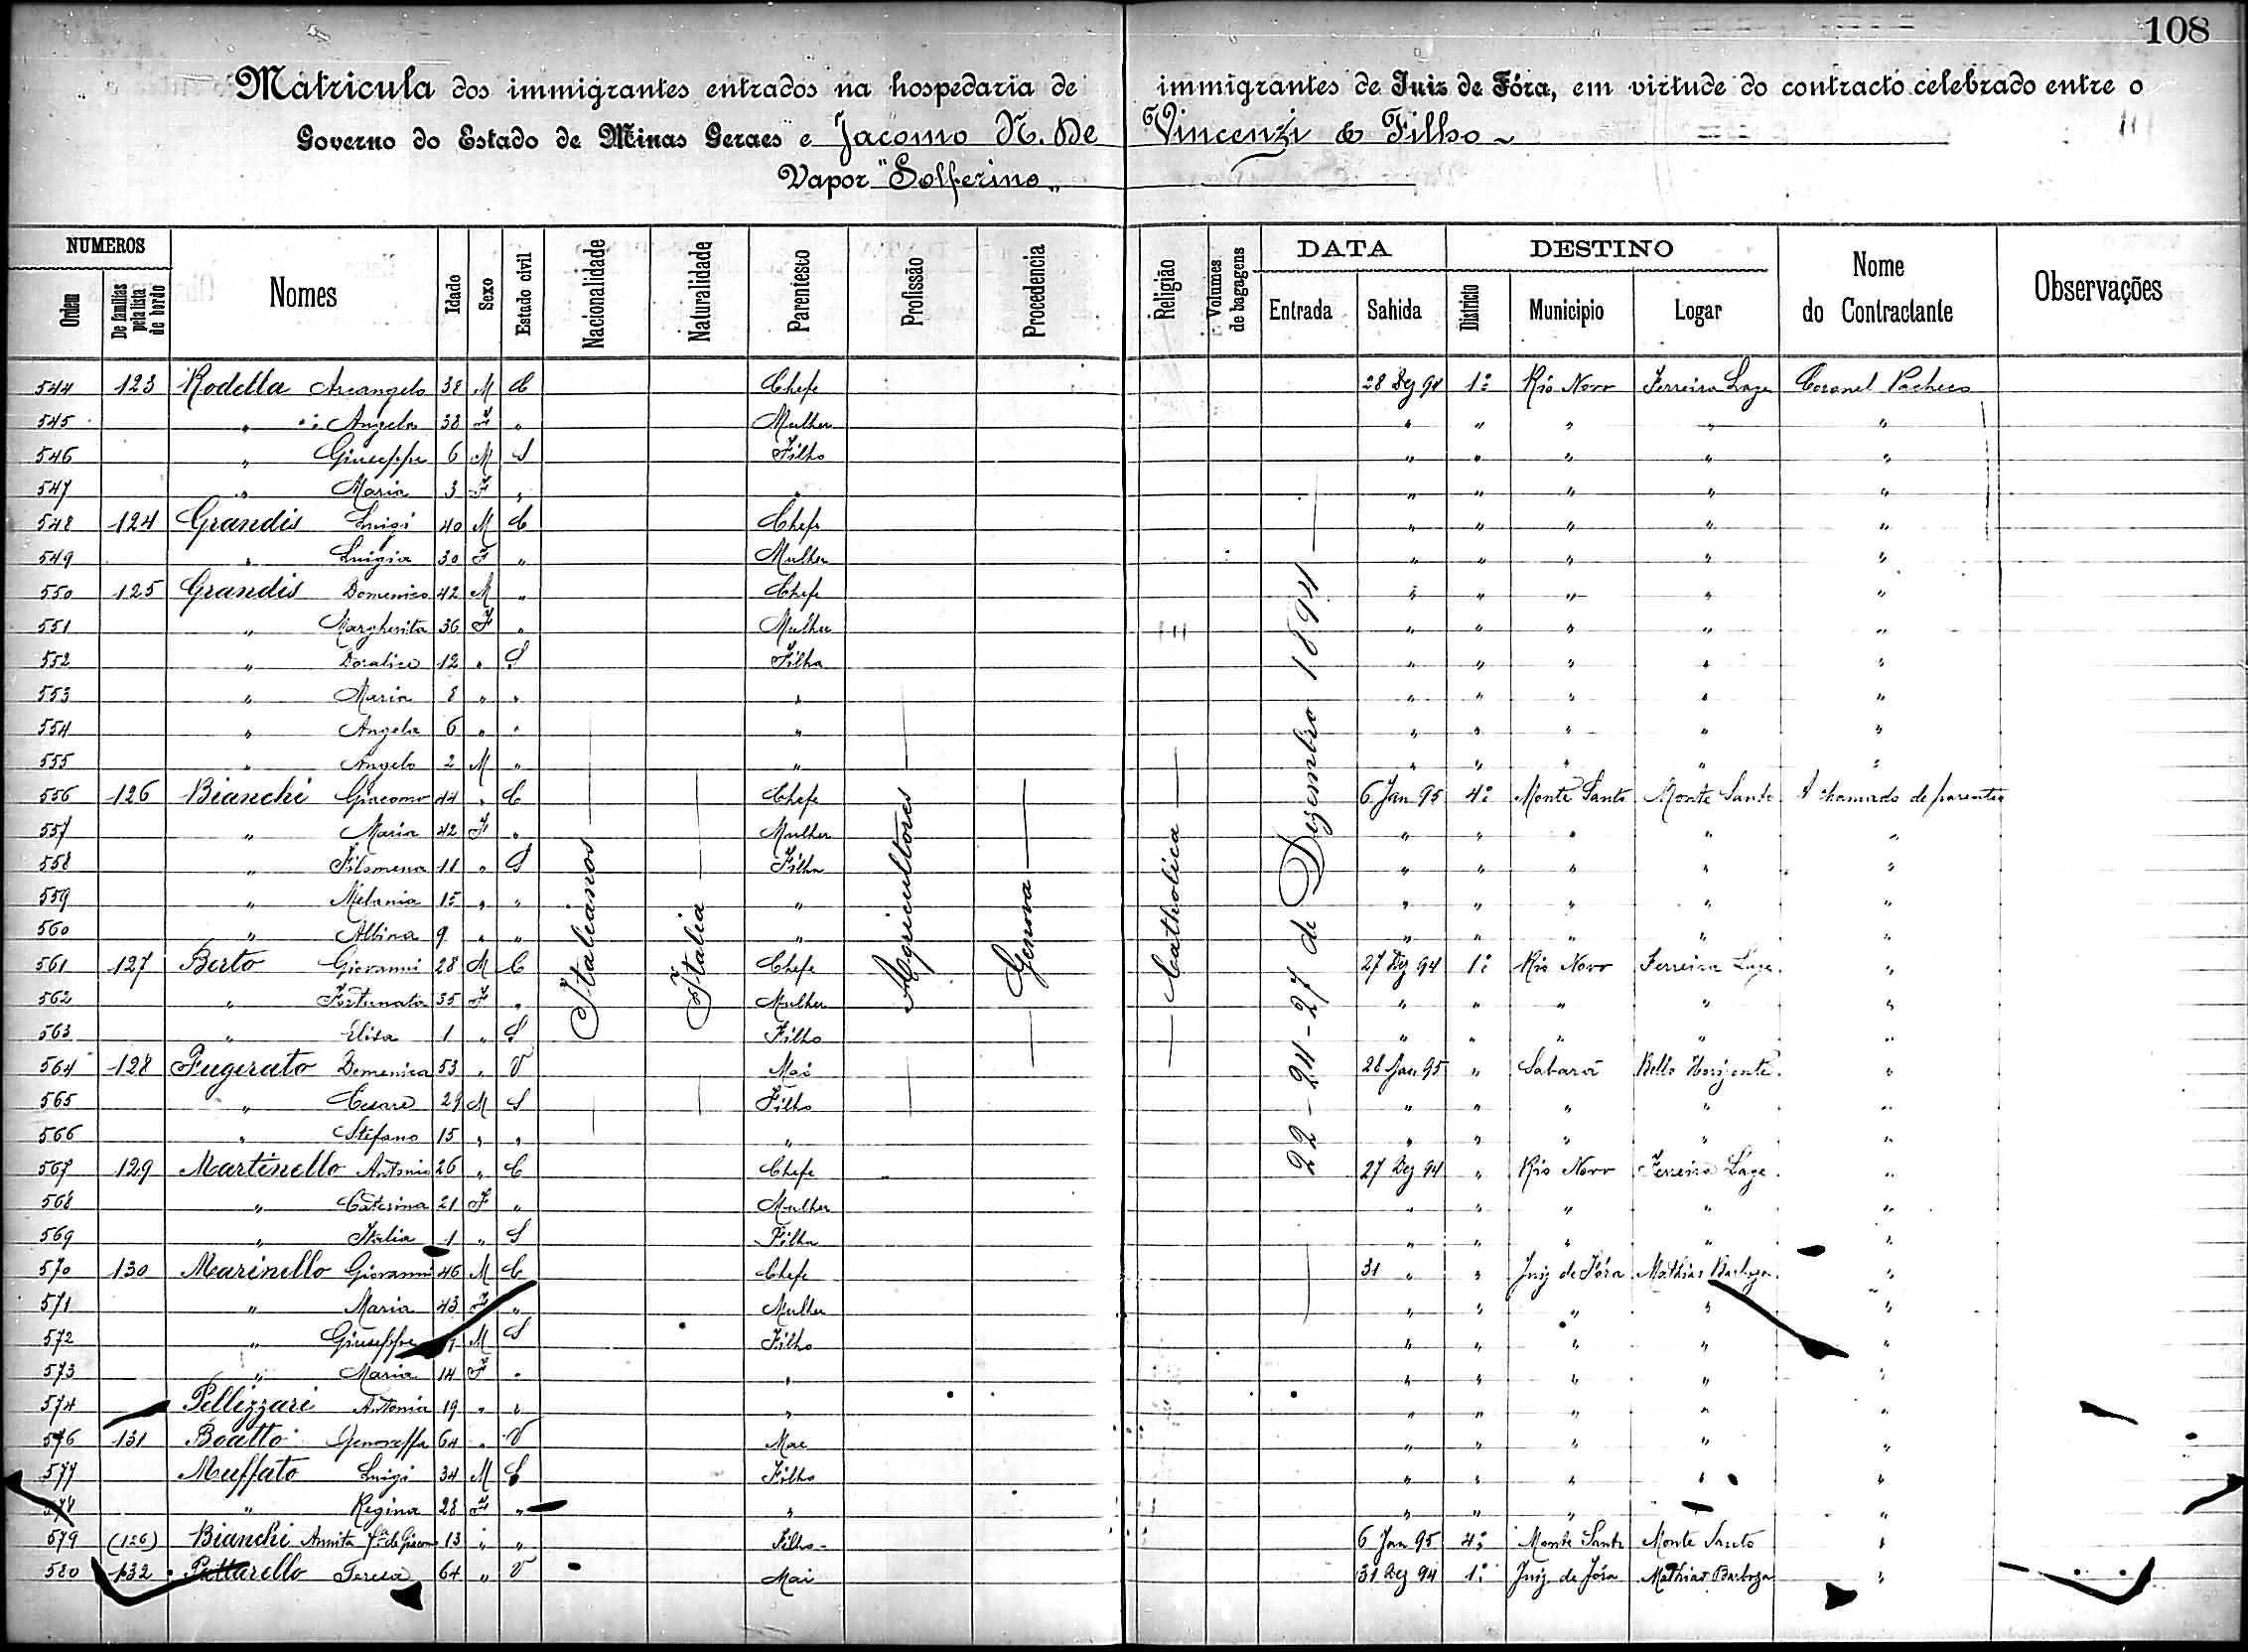 108
Matricula dos immigrantes entrados na hospedaria de immigrantes de Juiz de Fóra, em virtude do contracto celebrado entre o
Governo do Estado de Minas Geraes e Jacomo N. De Vincenzi & Filho
Vapor "Solferino"
NUMEROS DATA DESTINO
Ordem De familias pela lista de bordo Nomes Idade Sexo Estado civil Nacionalidade Naturalidade Parentesco Profissão Procedencia Religião Volumes de bagagens Entrada Sahida Districto Municipio Logar Nome do Contractante Observações
Italianos Italia Agricultores Genova Catholica 22-24-27 de Dezembro 1894
544 123 Rodella Arcangelo 38 M C Chefe 28 Dez 94 1º Rio Novo Ferreira Lage Coronel Pacheco
545 " Angela 38 F " Mulher " " " " "
546 " Giuseppe 6 M S Filho " " " " "
547 " Maria 3 F " " " " " " "
548 124 Grandis Luigi 40 M C Chefe " " " " "
549 " Luigia 30 F " Mulher " " " " "
550 125 Grandis Domenico 42 M " Chefe " " " " "
551 " Margherita 36 F " Mulher " " " " "
552 " Doralice 12 " S Filha " " " " "
553 " Maria 8 " " " " " " " "
554 " Angela 6 " " " " " " " "
555 " Angelo 2 M " " " " " " "
556 126 Bianchi Giacomo 44 " C Chefe 6 Jan 95 4º Monte Santo Monte Santo A chamado de parentes
557 " Maria 42 F " Mulher " " " " "
558 " Filomena 11 " S Filha " " " " "
559 " Melania 15 " " " " " " " "
560 " Albina 9 " " " " " " " "
561 127 Berto Giovanni 28 M C Chefe 27 Dez 94 1º Rio Novo Ferreira Lage "
562 " Fortunata 35 F " Mulher " " " " "
563 " Elisa 1 " S Filho " " " " "
564 128 Fugerato Domenica 53 " V Mai 28 Jan 95 " Sabará Bello Horizonte "
565 " Cesare 29 M S Filho " " " " "
566 " Stefano 15 " " " " " " " "
567 129 Martinello Antonio 26 " C Chefe 27 Dez 94 " Rio Novo Ferreira Lage "
568 " Caterina 21 F " Mulher " " " " "
569 " Italia 1 " S Filha " " " " "
570 130 Marinello Giovanni 46 M C Chefe 31 " " Juiz de Fóra Mathias Barboza "
571 " Maria 43 F " Mulher " " " " "
572 " Giuseppe M S Filho " " " " "
573 " Maria 14 F " " " " " " "
574 Pellizzari Antonia 19 " " " " " " " "
576 131 Boatto Genoveffa 64 " V Mae " " " " "
577 Muffato Luigi 34 M C Filho " " " " "
578 " Regina 28 F " " " " " " "
579 (126) Bianchi Annita fª de Giacomo 13 " " Filho 6 Jan 95 4º Monte Santo Monte Santo "
580 132 Pattarello Teresa 64 " V Mai 31 Dez 94 1º Juiz de Fóra Mathias Barboza "